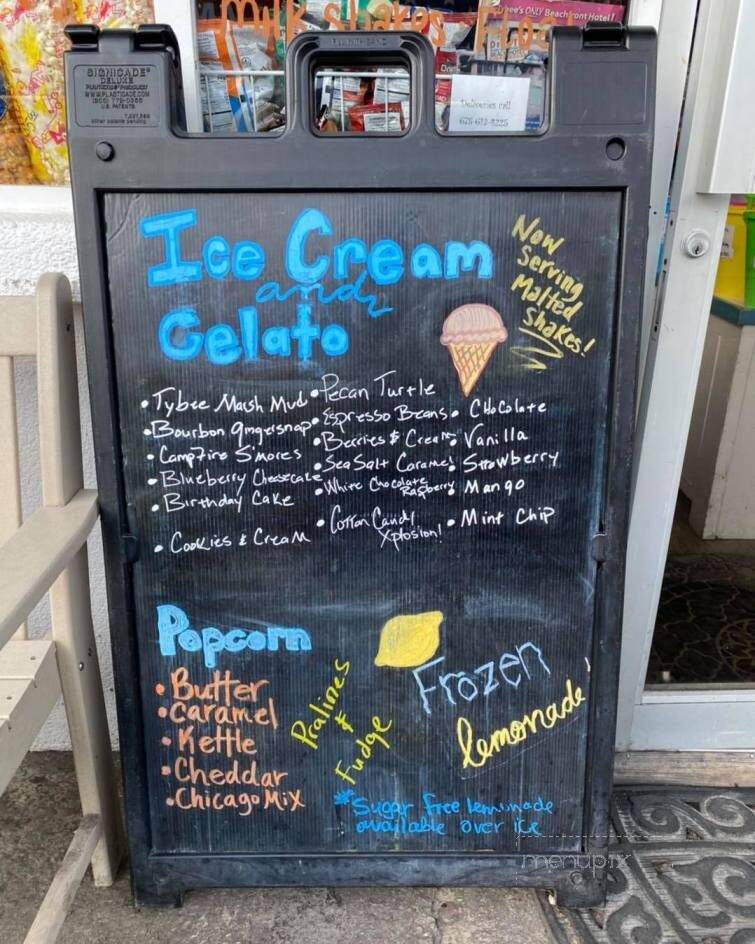 Milk Shakes Flo
Tybee's ONLY Beachfront Hotel!
SIGNICADE®
DELUXE
PLASTICADE® PRODUCTS
WWW.PLASTICADE.COM
(800) 772-0355
U.S. PATENTS
other patents pending
FILL WITH SAND
Deliveries call
Ice Cream
and
Gelato
Now
Serving
Malted
Shakes!
• Tybee Marsh Mud
• Bourbon gingersnap
• Campfire S'mores
• Blueberry Cheesecake
• Birthday Cake
• Cookies & Cream
• Pecan Turtle
• Espresso Beans
• Berries & Cream
• Sea Salt Caramel
• White Chocolate
Raspberry
• Cotton Candy
Xplosion!
• Chocolate
• Vanilla
• Strawberry
• Mango
• Mint Chip
Popcorn
• Butter
• Caramel
• Kettle
• Cheddar
• Chicago Mix
Pralines
&
Fudge
Frozen
lemonade!
*Sugar free lemonade
available over ice
menupix